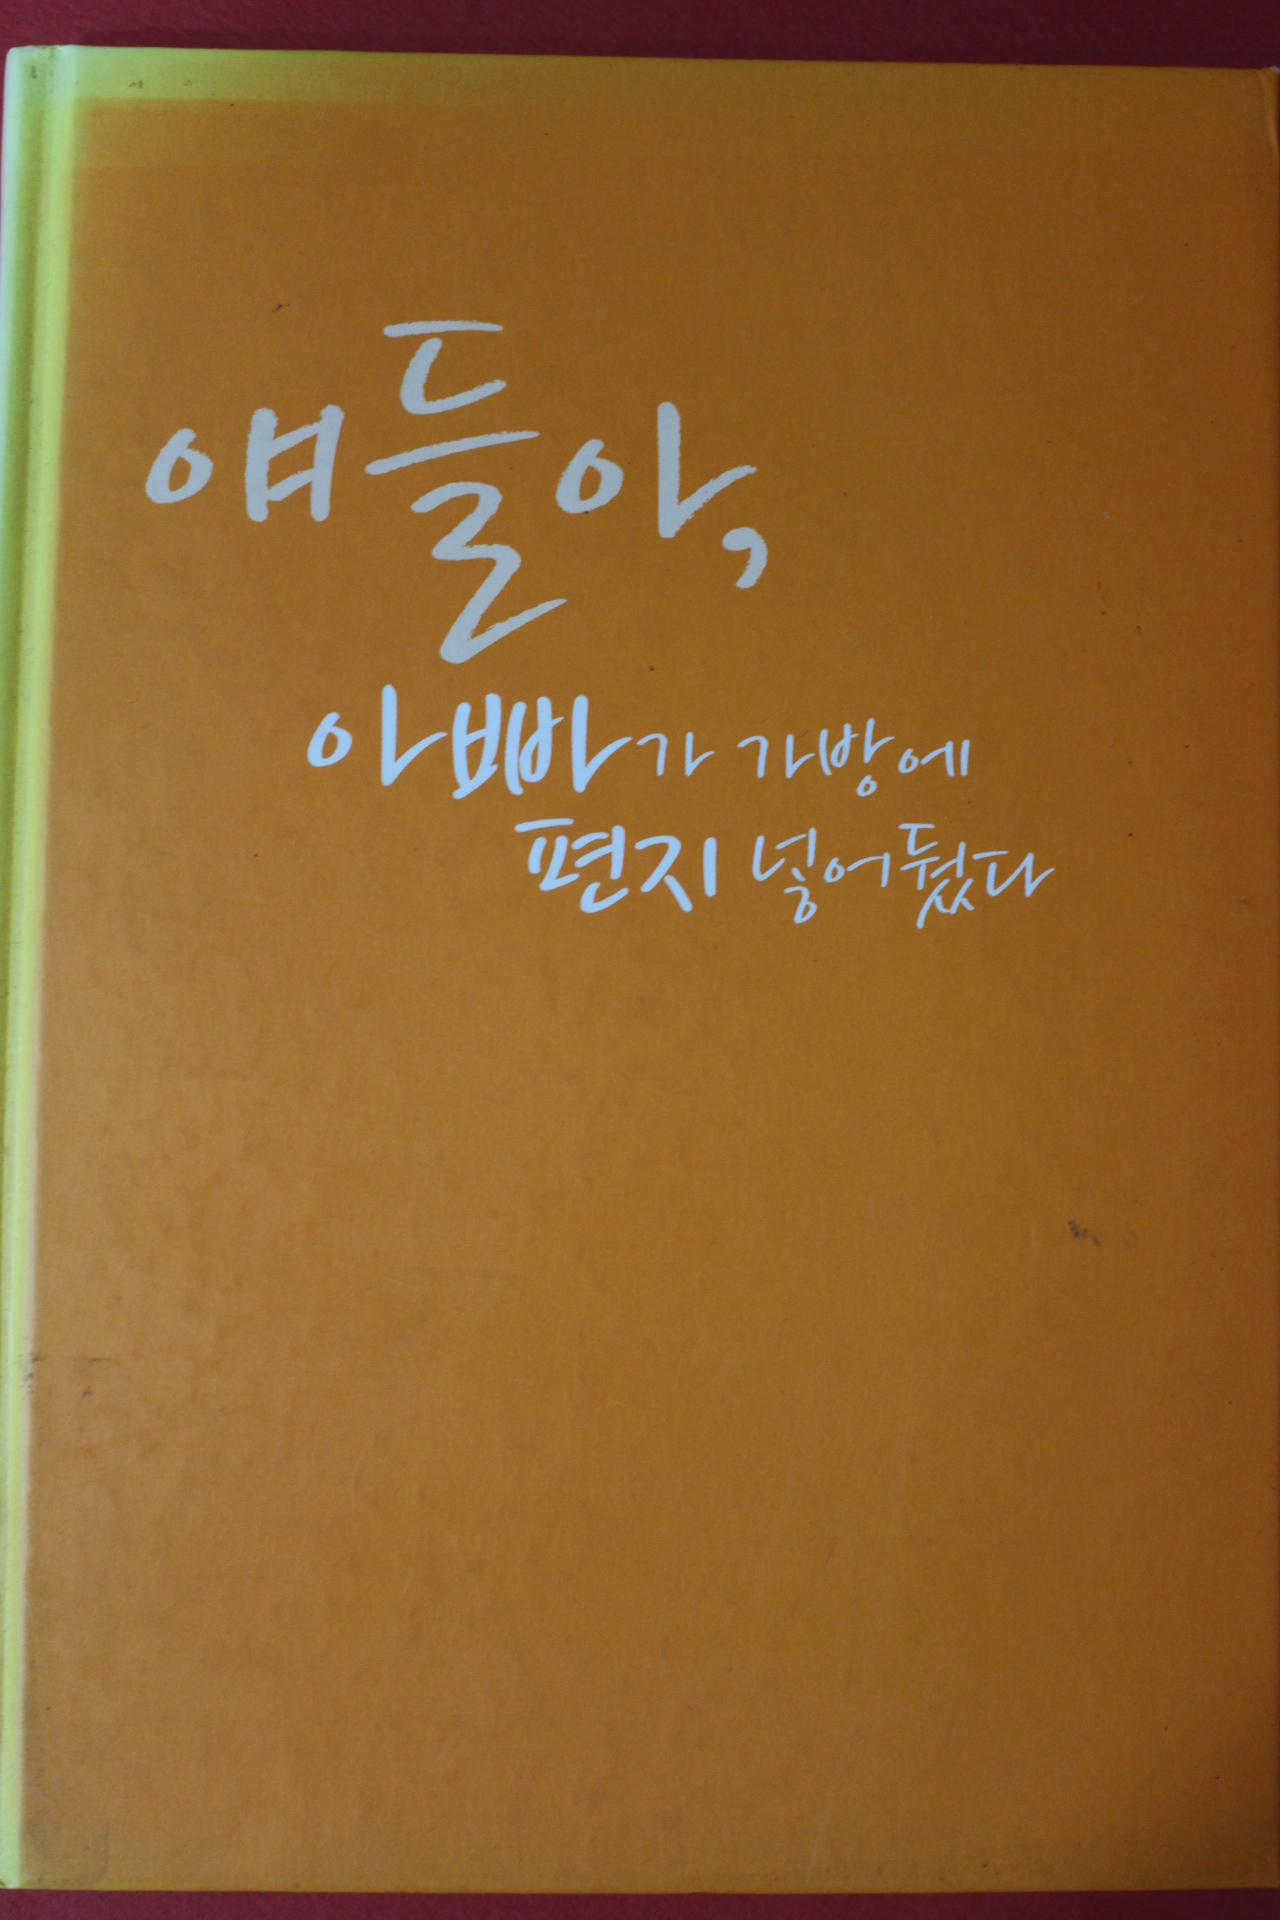 얘들아,
아빠가 가방에
편지 넣어뒀다